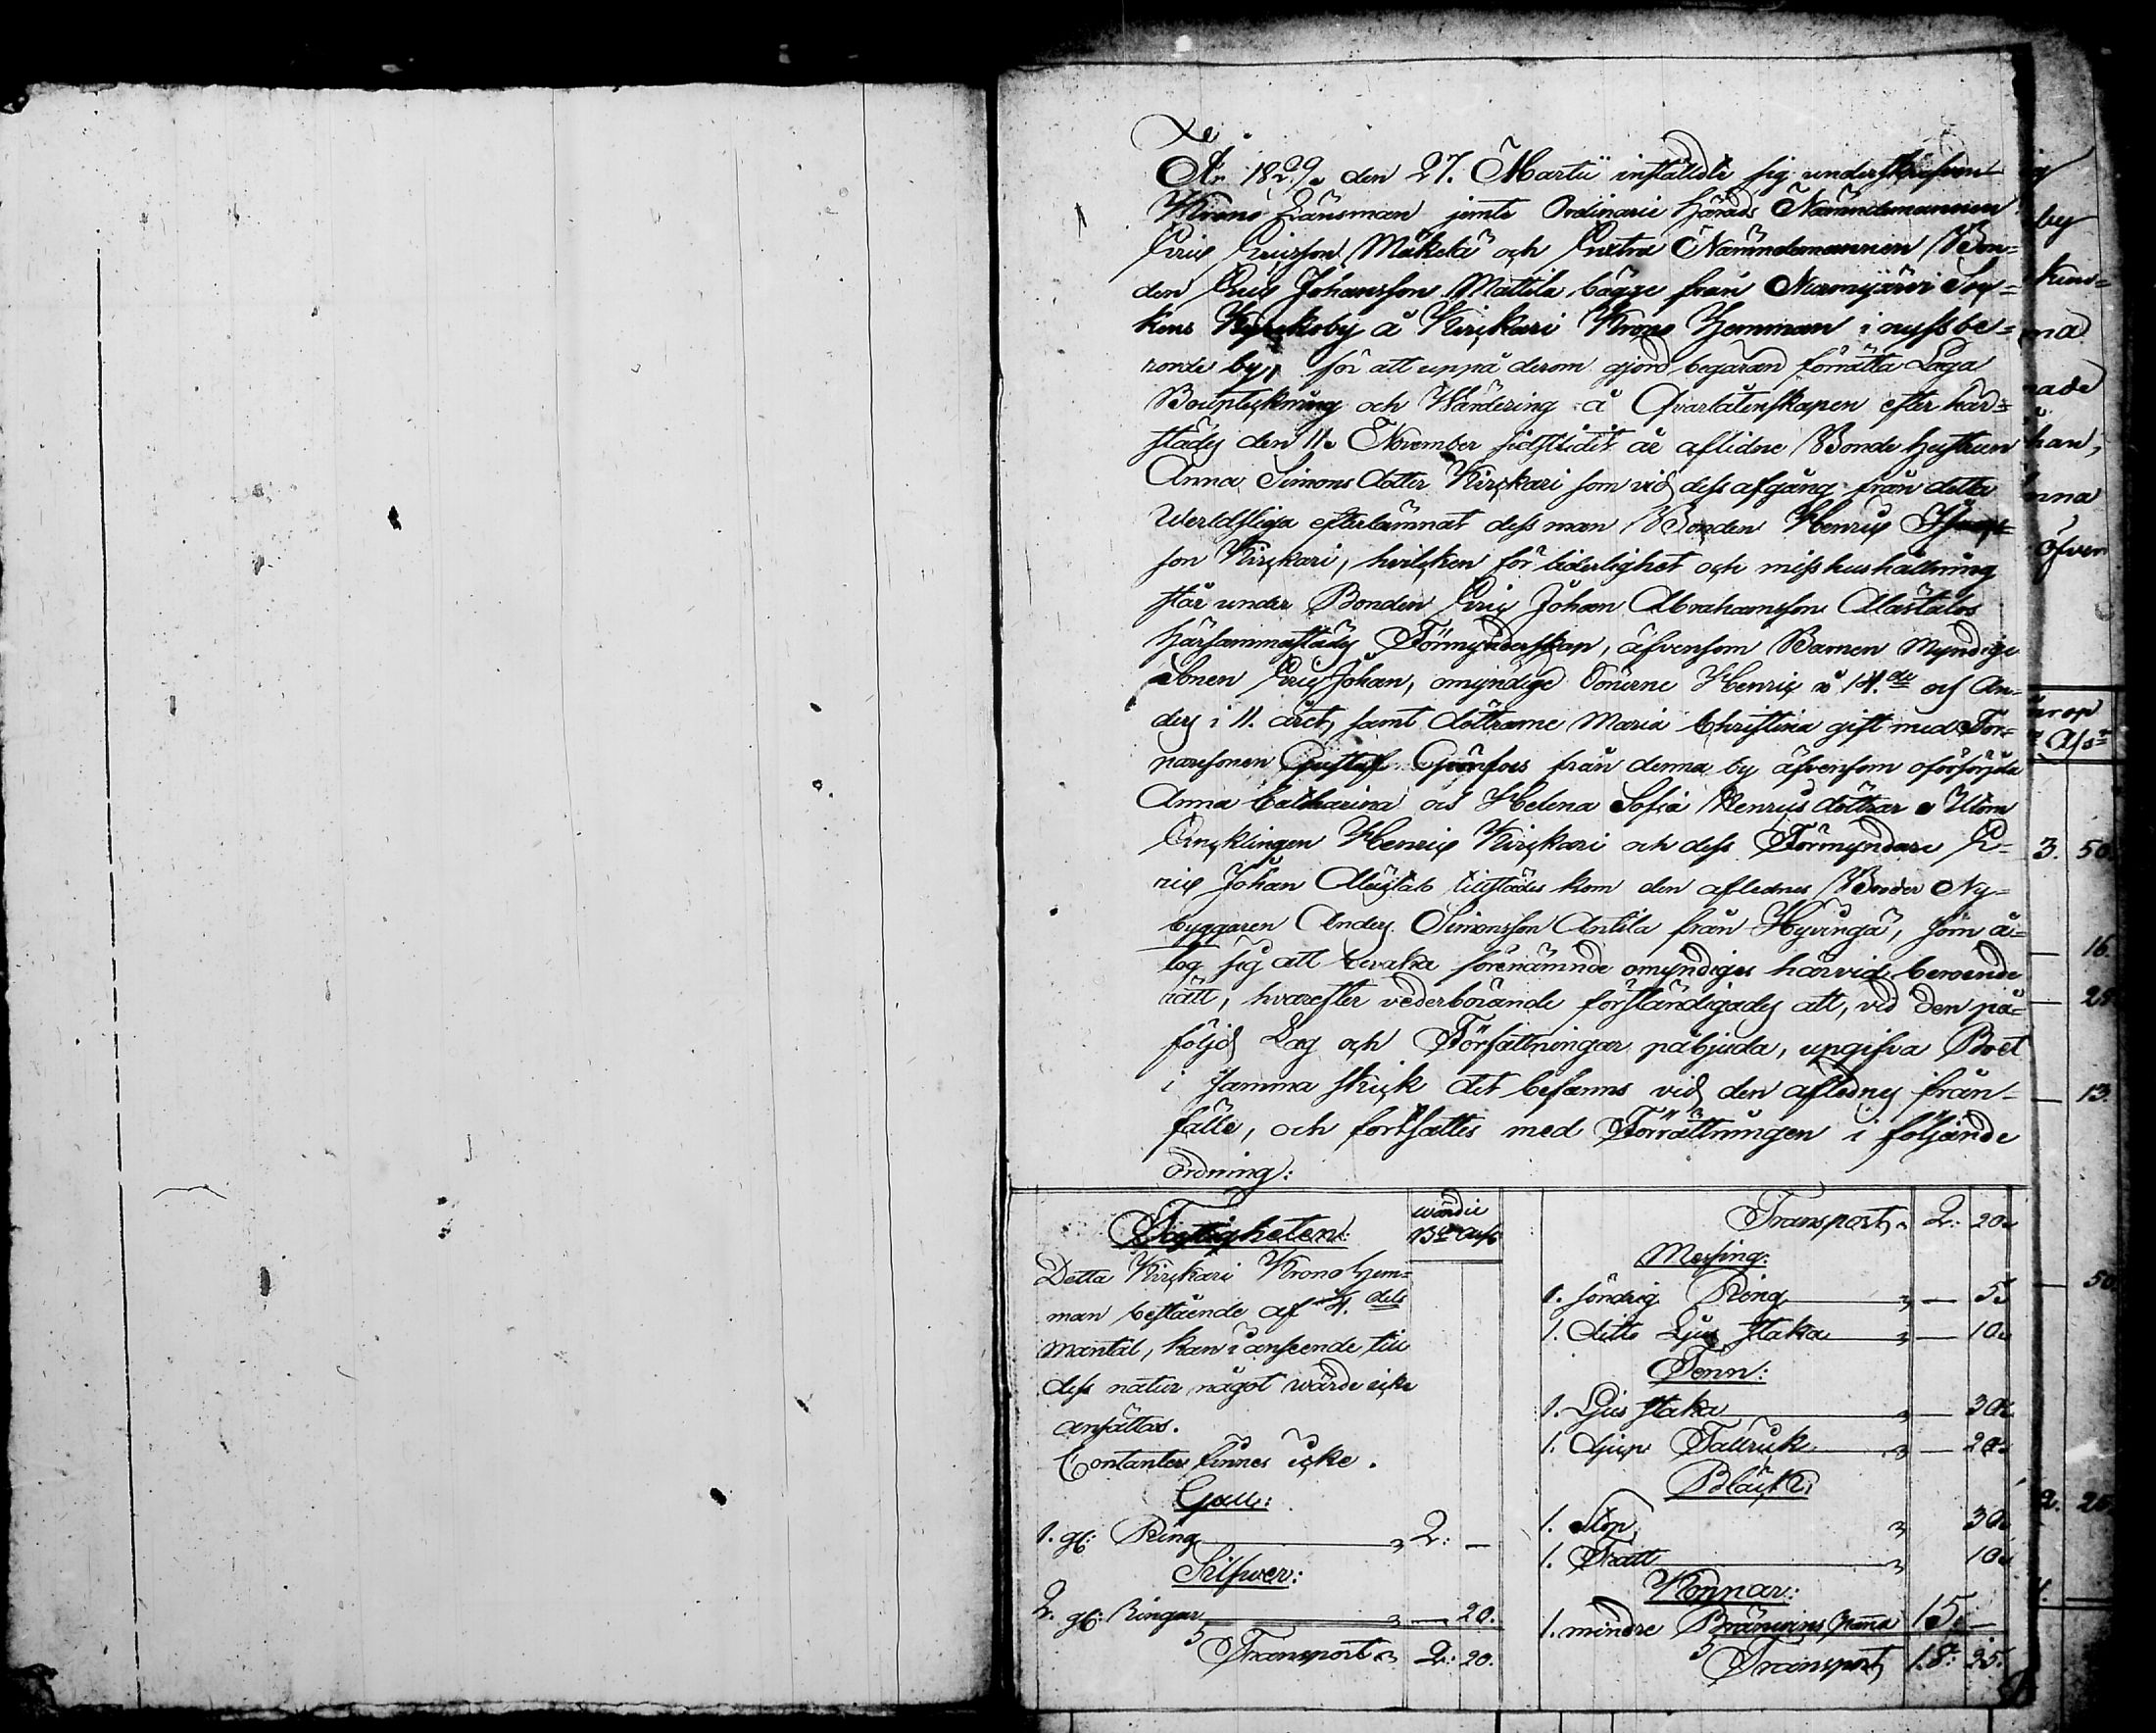 År 1829. den 27. Martii inställdte sig underskrefven
Krono Länsman jemte Ordinarie Härads Nämndemannen
Eric Ericsson Mäkelä och Extra Nämndemannen Bon=
den Eric Johansson Mattila bägge från Nurmijärvi Soc=
kens Kyrckoby å Kirckari Krono Hemman i nyssbe=
rörde by, för att uppå derom gjord begäran förrätta Laga
Boupteckning och Wärdering å Qvarlåtenskapen efter här=
städes den 11. November sidstledit år aflidne Bonde hustrun
Anna Simons dotter Kirckari som vid dess afgång från detta
Werldsliga efterlämnat dess man Bonden Henric
son Kirckari, hvilcken för liderlighet och misshushållning
står under Bonden Eric Johan Abrahamsson Alastalos
härsammastädes Förmynderskap, äfvensom Barnen Myndige
Sonen Eric Johan, omyndige Sönerne Henric å 14.de och An=
ders i 11. året, samt döttrarne Maria Christina gift med Tor=
paresonen Gustaf Grönfors från denna by äfvensom oförsörjda
Anna Catharina och Helena Sofia Henrics döttrar. Utom
Enncklingen Henric Kirckari och dess Förmyndare E=
ric Johan Alastalo tillstädes kom den aflednes Broder Ny=
byggaren Anders Simonsson Antila från Hyvingä, som å=
tog sig att bevaka förenämnde omyndiges härvid beroende
rätt, hvarefter vederbörande förständigades att, vid den på=
följd Lag och Författningar påbjuda, uppgifva Boet
i samma skick det befanns vid den aflednes från=
fälle, och fortsattes med Förrättningen i följande
ordning:
Fastigheten:
wärdie
B:co Ass.
Detta Kirckari Krono Hem=
man bestående af dels
mantal, kan i anseende till
dess natur något wärde icke
ansättas.
Contanter finnes icke.
Gull:
1. gl: Ring 2: —
Silfwer:
2. gl: Ringar — 20.
Transport 2: 20.
Transport 2: 20.
Messing:
1. söndrig Ring — 5.
1. ditto Ljus staka — 10.
Tenn:
1. Ljus staka — 30.
1. djup Tallrick — 20.
Bläck:
1. Stop 30.
1. Tratt 10.
Koppar:
1. mindre Bränvins Panna 15. —
Transport 18: 25.
by
öfven
3. 50.
— 16.
— 13.
— 50.